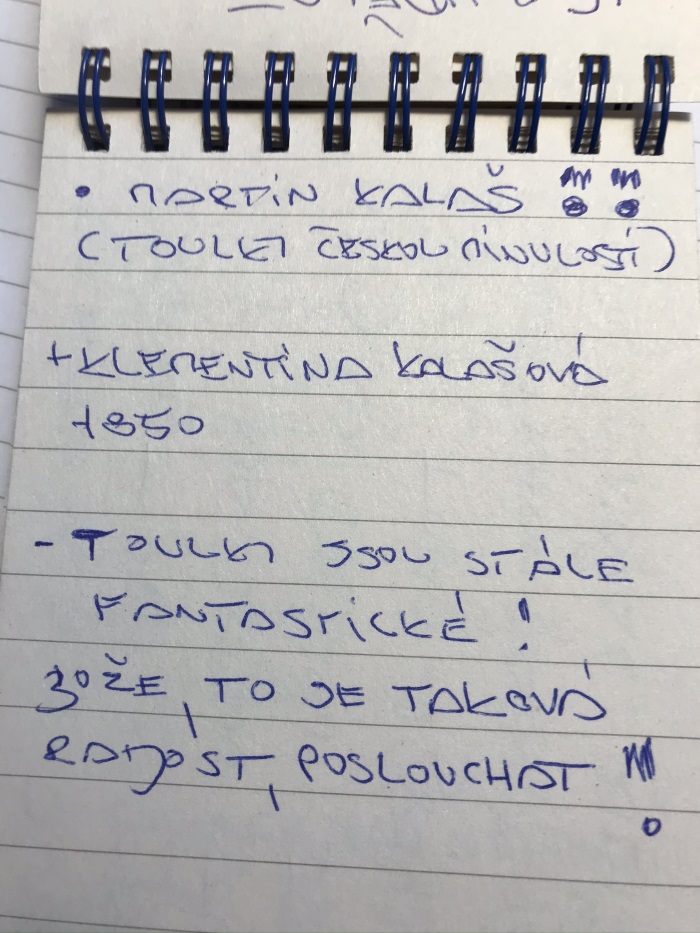 • MARTIN KALAŠ !!
(TOULKY ČESKOU MINULOSTÍ)
+KLEMENTINA KALAŠOVÁ
1850
- TOULKY JSOU STÁLE
FANTASTICKÉ!
BOŽE, TO JE TAKOVÁ
RADOST, POSLOUCHAT !